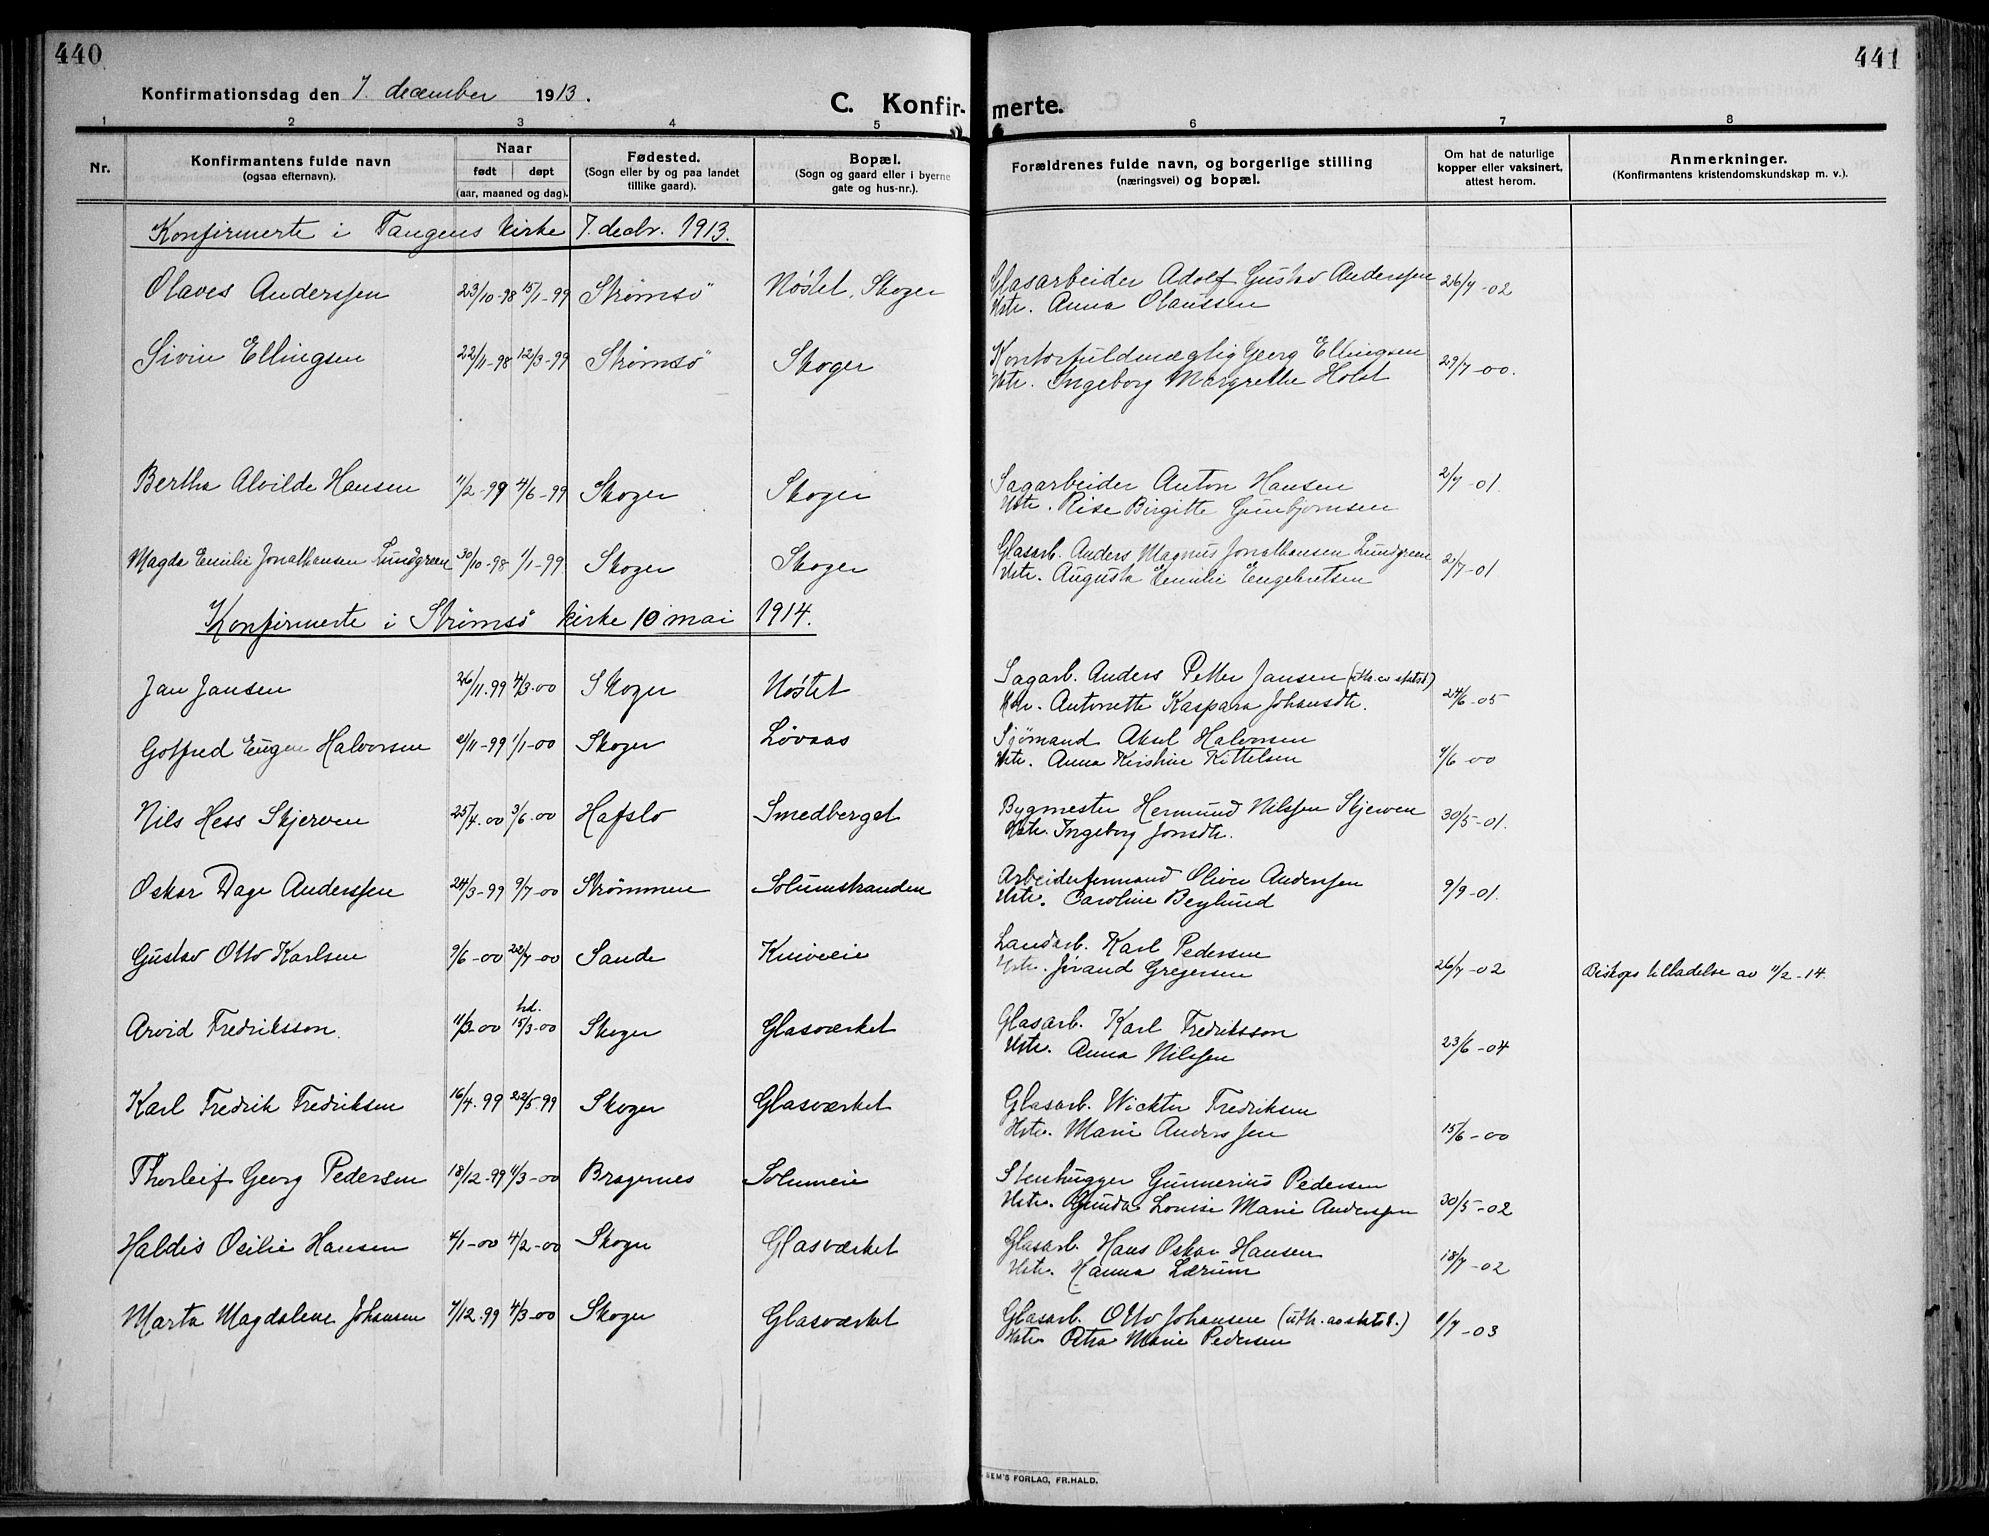 440
441
Konfirmationsdag den 7. december 1913.
C. Konfirmerte.
1 2 3 4 5 6 7 8
Nr.
Konfirmantens fulde navn (ogsaa efternavn).
Naar født døpt (aar, maaned og dag).
Fødested. (Sogn eller by og paa landet tillike gaard).
Bopæl. (Sogn og gaard eller i byerne gate og hus-nr.).
Forældrenes fulde navn, og borgerlige stilling (næringsvei) og bopæl.
Om hat de naturlige kopper eller vaksinert, attest herom.
Anmerkninger. (Konfirmantens kristendomskundskap m. v.).
Konfirmerte i Tangens kirke 7. decbr. 1913.
Olaves Anderssen 23/10-98 15/1-99 Strømsö Nøstet, Skoger Glasarbeider Adolf Gustav Anderssen 26/7-02
Hstr. Anna Olaussen
Sivin Ellingsen 22/11-98 12/3-99 Strømsö Skoger Kontorfuldmægtig Georg Ellingsen 29/7-00.
Hstr. Ingeborg Margrethe Holst
Bertha Alvilde Hansen 11/2-99 4/6-99 Skoger Skoger Sagarbeider Anton Hansen 2/7-01.
Hstr. Rise Birgitte Gunbjørnsen
Magda Emilie Jonathansen Lundgreen 30/10-98 1/1-99 Skoger Skoger Glasarb. Anders Magnus Jonathansen Lundgreen 2/7-01
Hstr. Augusta Emilie Engebretsen
Konfirmerte i Strømsö kirke 10 mai 1914.
Jan Jansen 26/11.99 4/3-00 Skoger Nøstet Sagarb. Anders Petter Jansen (uth. av statsk.) 24/6-05
Hstr. Antonette Kaspara Johansdtr.
Gotfred Eugen Halvorsen /11-99 1/1-00 Skoger Løvaas Sjømand Aksel Halvorsen /6-00
Hstr. Anna Kirstine Kittelsen
Nils Hess Skjerven 25/4.00 3/6.00 Hafslo Smedberget Bygmester Hermund Nilssen Skjerven 30/5-01.
Hstr. Ingeborg Jonsdtr.
Oskar Dage Anderssen 24/3-99 9/7-00 Strömmen Solumstranden Arbeiderformand Oliver Anderssen 9/9-01.
Hstr. Caroline Berglund
Gustav Otto Karlsen 9/6-00 22/7-00 Sande Kniveie Landarb. Karl Pedersen 26/7-02 Biskops tilladelse av 11/2-14.
Hstr. Jørand Gregersen
Arvid Fredriksson 11/3-00 hd. 15/3-00 Skoger Glasværket Glasarb. Karl Fredriksson 23/6-04
Hstr. Anna Nilssen
Karl Fredrik Fredriksen 16/4.99 22/5.99 Skoger Glasværket Glasarb. Wickter Fredriksen 15/6-00
Hstr. Marie Anderssen
Thorleif Georg Pedersen 18/12-99 4/3-00 Bragernes Solumeie Stenhugger Gunnerius Pedersen 30/5-02
Hstr. Gunda Lovise Marie Anderssen
Haldis Ocilie Hansen /1-00 4/2-00 Skoger Glasværket Glasarb. Hans Oskar Hansen 18/7-02
Hstr. Hanna Lærum
Marta Magdalene Johansen 7/12.99 4/3-00 Skoger Glasværket Glasarb. Otto Johansen (uth. av statsk.) /7-03
Hstr. Petra Marie Pedersen
SEM'S FORLAG, FR. HALD.